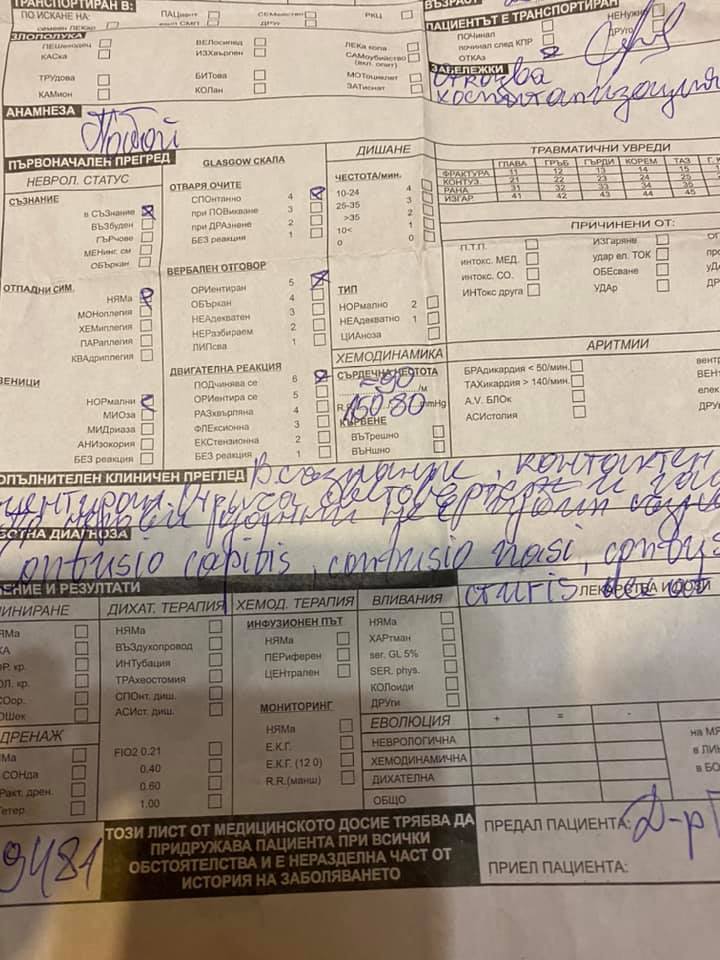 ТРАНСПОРТИРАН В:
ПО ИСКАНЕ НА:
ПАЦиент
СЕМейство
РКЦ
ДРУг
ЗЛОПОЛУКА
ПЕШеходец
КАСка
ТРУдова
КАМион
ВЕЛосипед
ИЗХвърлен
БИТова
КОЛан
ЛЕКа кола
САМоубийство
(вкл. опит)
МОТоциклет
ЗАТиснат
ПАЦИЕНТЪТ Е ТРАНСПОРТИРАН
НЕНУжн
ДРУго
ПОЧинал
починал след КПР
ОТКАз
ЗАБЕЛЕЖКИ
отказва
хоспитализация
АНАМНЕЗА
Побой
ПЪРВОНАЧАЛЕН ПРЕГРЕД
НЕВРОЛ. СТАТУС
СЪЗНАНИЕ
в СЪЗнание
ВЪЗбуден
ГЪРчове
МЕНинг. см
ОБЪркан
ОТПАДНИ СИМ.
НЯМа
МОНоплегия
ХЕМиплегия
ПАРаплегия
КВАдриплегия
ЕНИЦИ
НОРмални
МИОза
МИДриаза
АНИзокория
БЕЗ реакция
GLASGOW СКАЛА
ОТВАРЯ ОЧИТЕ
СПОнтанно 4
при ПОВикване 3
при ДРАзнене 2
БЕЗ реакция 1
ВЕРБАЛЕН ОТГОВОР
ОРИентиран 5
ОБЪркан 4
НЕАдекватен 3
НЕРазбираем 2
ЛИПсва 1
ДВИГАТЕЛНА РЕАКЦИЯ
ПОДчинява се 6
ОРИентира се 5
РАЗхвърляна 4
ФЛЕксионна 3
ЕКСтензионна 2
БЕЗ реакция 1
ДИШАНЕ
ЧЕСТОТА/МИН.
10-24 4
25-35 3
>35 2
10< 1
0 0
ТИП
НОРмално 2
НЕАдекватно 1
ЦИАноза
ХЕМОДИНАМИКА
СЪРДЕЧНА ЧЕСТОТА
=90 /м
R.R. 150 80 mmHg
КЪРВЕНЕ
ВЪТрешно
ВЪНшно
ТРАВМАТИЧНИ УВРЕДИ
ГЛАВА ГРЪБ ГЪРДИ КОРЕМ ТАЗ
ФРАКТУРА 11 12 13 14 15
КОНТУЗ. 21 22 23 24 25
РАНА 31 32 33 34 35
ИЗГАР. 41 42 43 44 45
ПРИЧИНЕНИ ОТ:
П.Т.П.
интокс. МЕД.
интокс. СО.
ИНТокс друга
ИЗГаряне
удар ел. ТОК
ОБЕсване
УДАр
АРИТМИИ
БРАдикардия < 50/мин.
ТАХикардия > 140/мин.
A.V. БЛОк
АСИстолия
ОПЪЛНИТЕЛЕН КЛИНИЧЕН ПРЕГЛЕД В съзнание, контактен
БОТНА ДИАГНОЗА
ontusio capitis, contusio nasi, contus
cruris
ЕНИЕ И РЕЗУЛТАТИ
ЛЕКАРСТВА И ДОЗИ
ДИХАТ. ТЕРАПИЯ
НЯМа
ВЪЗдухопровод
ИНТубация
ТРАхеостомия
СПОнт. диш.
АСИст. диш.
FIO2 0.21
0.40
0.60
1.00
ДРЕНАЖ
ХЕМОД. ТЕРАПИЯ
ИНФУЗИОНЕН ПЪТ
НЯМа
ПЕРиферен
ЦЕНтрален
МОНИТОРИНГ
НЯМа
Е.К.Г.
Е.К.Г. (12 0)
R.R.(манш)
ВЛИВАНИЯ
НЯМа
ХАРтман
ser. GL 5%
SER. phys.
КОЛоиди
ДРУги
ЕВОЛЮЦИЯ + = -
НЕВРОЛОГИЧНА
ХЕМОДИНАМИЧНА
ДИХАТЕЛНА
ОБЩО
9481
ТОЗИ ЛИСТ ОТ МЕДИЦИНСКОТО ДОСИЕ ТРЯБВА ДА
ПРИДРУЖАВА ПАЦИЕНТА ПРИ ВСИЧКИ
ОБСТОЯТЕЛСТВА И Е НЕРАЗДЕЛНА ЧАСТ ОТ
ИСТОРИЯ НА ЗАБОЛЯВАНЕТО
ПРЕДАЛ ПАЦИЕНТА: Д-р
ПРИЕЛ ПАЦИЕНТА: